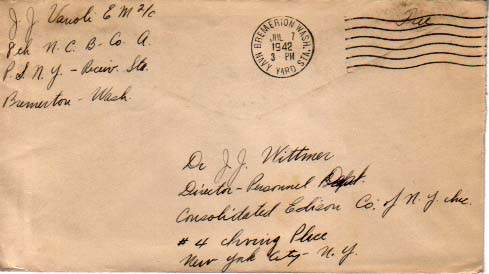 J. J. Varoli E M 2/c
8th N. C. B - Co A.
P. S. N. Y. - Receiv. Sta.
Bremerton - Wash.
BREMERTON, WASH.
JUL 7
1942
3 PM
NAVY YARD STA.
Free
Dr J. J. Wittmer
Director - Personnel Dept.
Consolidated Edison Co. of N. Y. Inc.
# 4 Irving Place
New York City - N. Y.